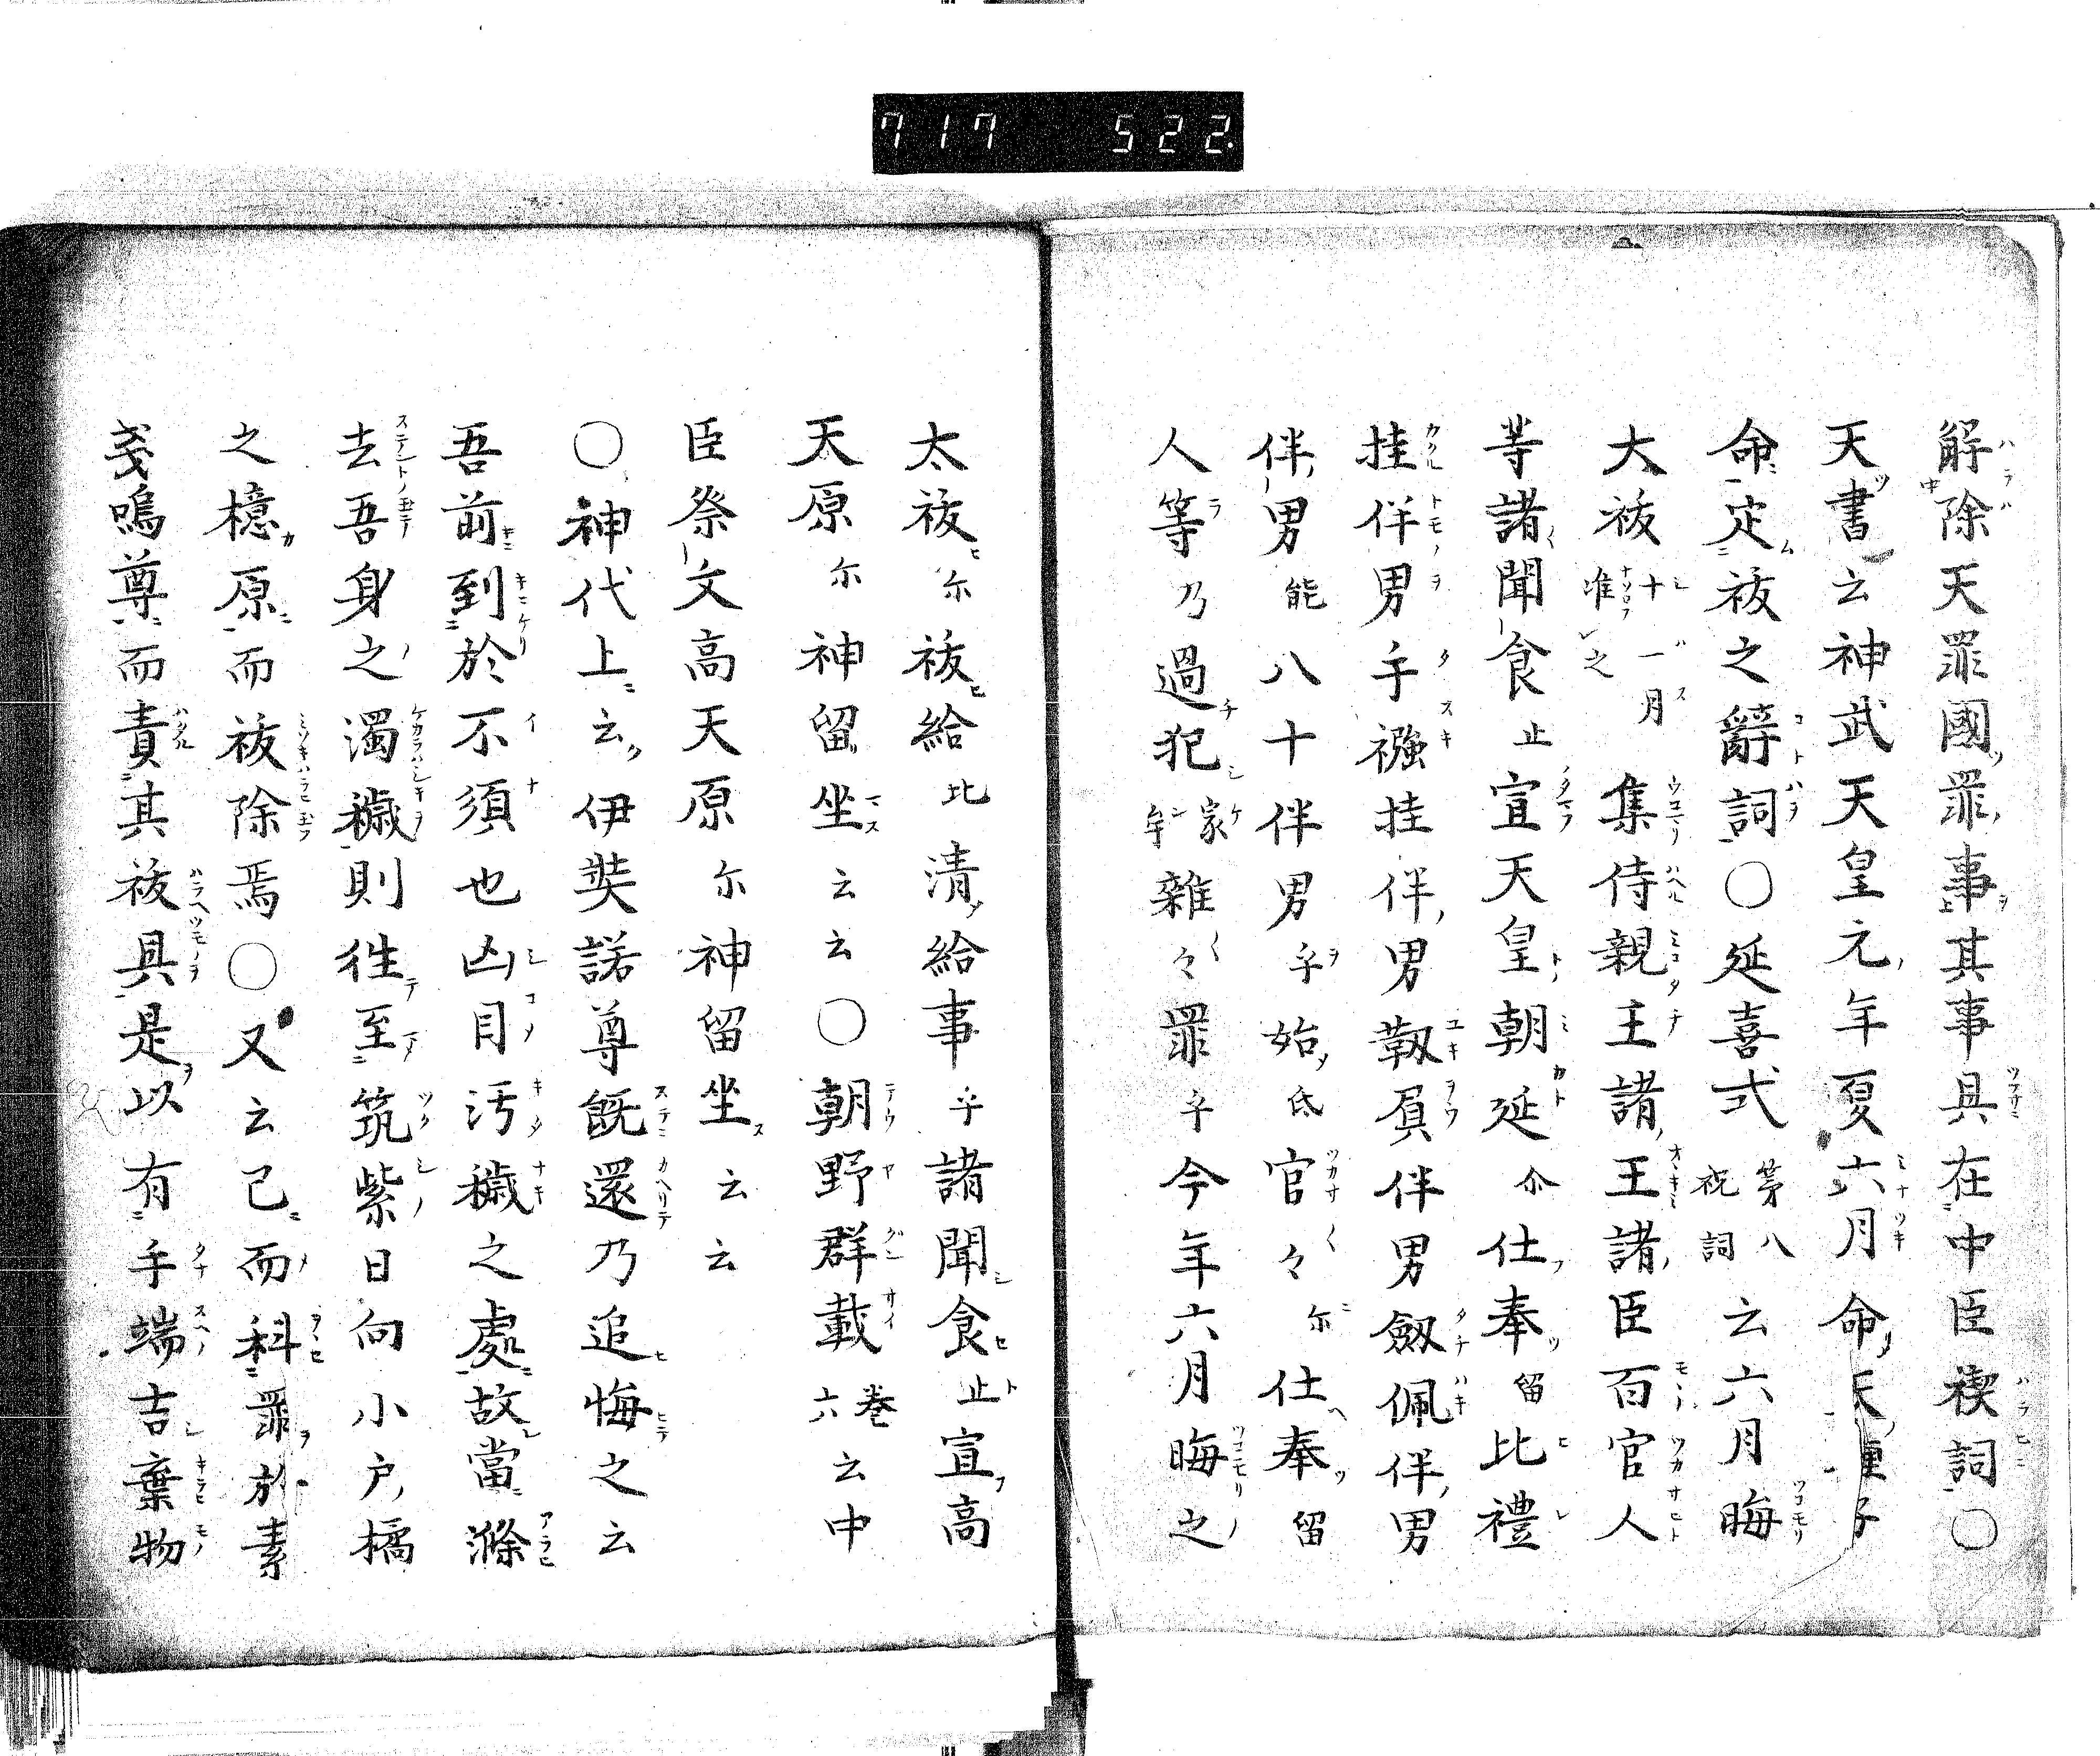 717 522.
解除天罪國罪事其事具在中臣禊詞○
天書云神武天皇元年夏六月命天種子
命定祓之辭詞○延喜式第八祝詞云六月晦
大祓十一月准之集侍親王諸王諸臣百官人
等諸聞食止宣天皇朝廷尒仕奉留比禮
挂伴男手襁挂伴男靱負伴男劔佩伴男
伴男能八十伴男乎始氐官々尓仕奉留
人等乃過犯家牟雜々罪乎今年六月晦之
太祓尓祓給比清給事乎諸聞食止宣高
天原尓神留坐云云○朝野群載六巻云中
臣祭文高天原尓神留坐云云
○神代上云伊弉諾尊既還乃追悔之云
吾前到於不須也凶目汚穢之處故當滌
去吾身之濁穢則往至筑紫日向小戸橘
之檍原而祓除焉○又云已而科罪於素
戔嗚尊而責其祓具是以有手端吉棄物